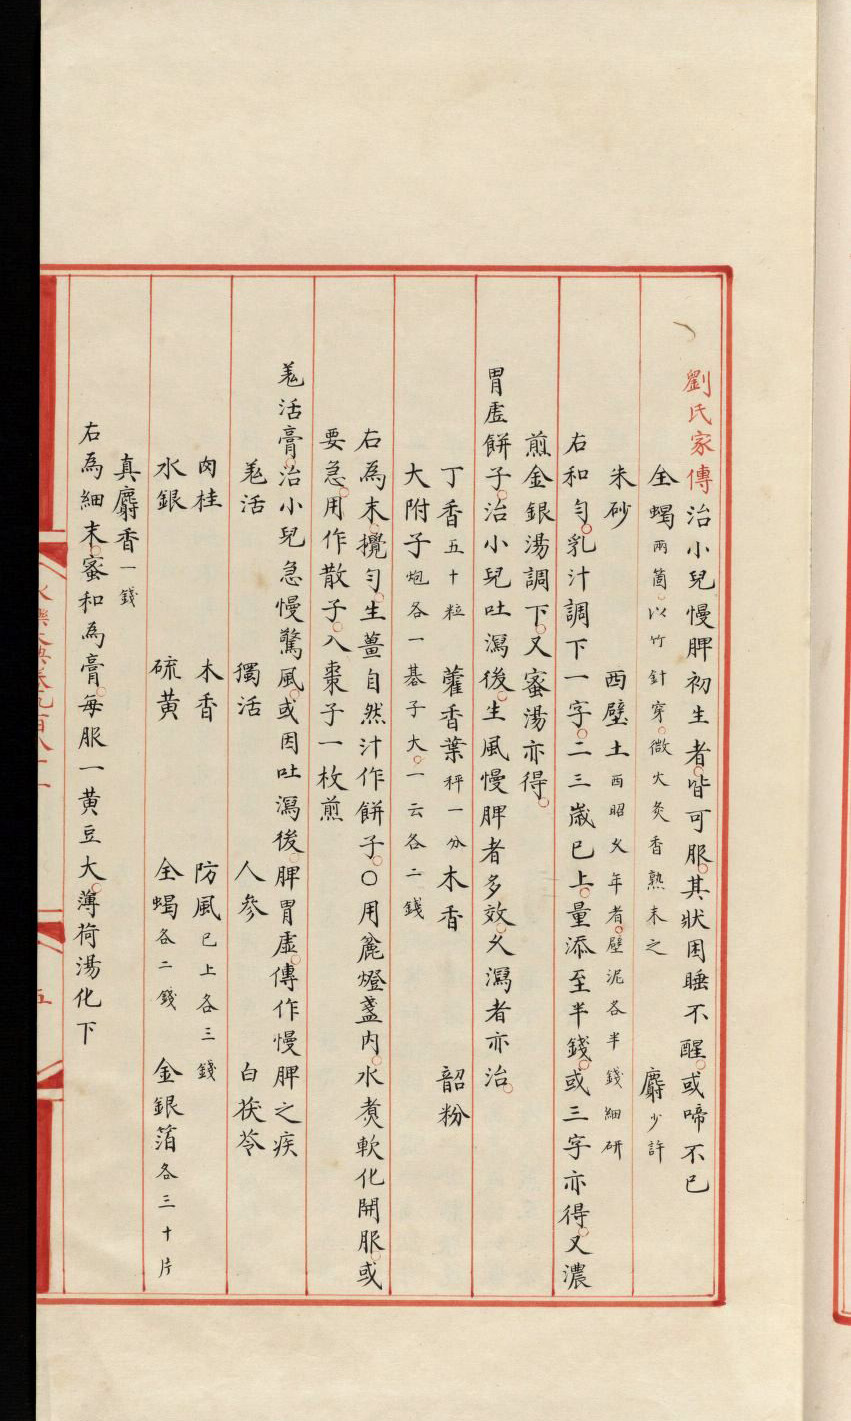 劉氏家傳治小兒慢脾初生者皆可服其狀困睡不醒或啼不已
全蝎兩箇以竹針穿微火炙香熟末之 麝少許
朱砂 西壁土西昭久年者壁泥各半錢細研
右和勻乳汁調下一字二三歲已上量添至半錢或三字亦得又濃
煎金銀湯調下又蜜湯亦得
胃虛餅子治小兒吐瀉後生風慢脾者多效久瀉者亦治
丁香五十粒 藿香葉秤一分 木香 韶粉
大附子炮各一碁子大一云各二錢
右為末攪勻生薑自然汁作餅子○用麄燈盞內水煮軟化開服或
要急用作散子入棗子一枚煎
羗活膏治小兒急慢驚風或因吐瀉後脾胃虛傳作慢脾之疾
羗活 獨活 人參 白茯苓
肉桂 木香 防風已上各三錢
水銀 硫黄 全蝎各二錢 金銀箔各三十片
真麝香一錢
右為細末蜜和為膏每服一黄豆大薄荷湯化下
五